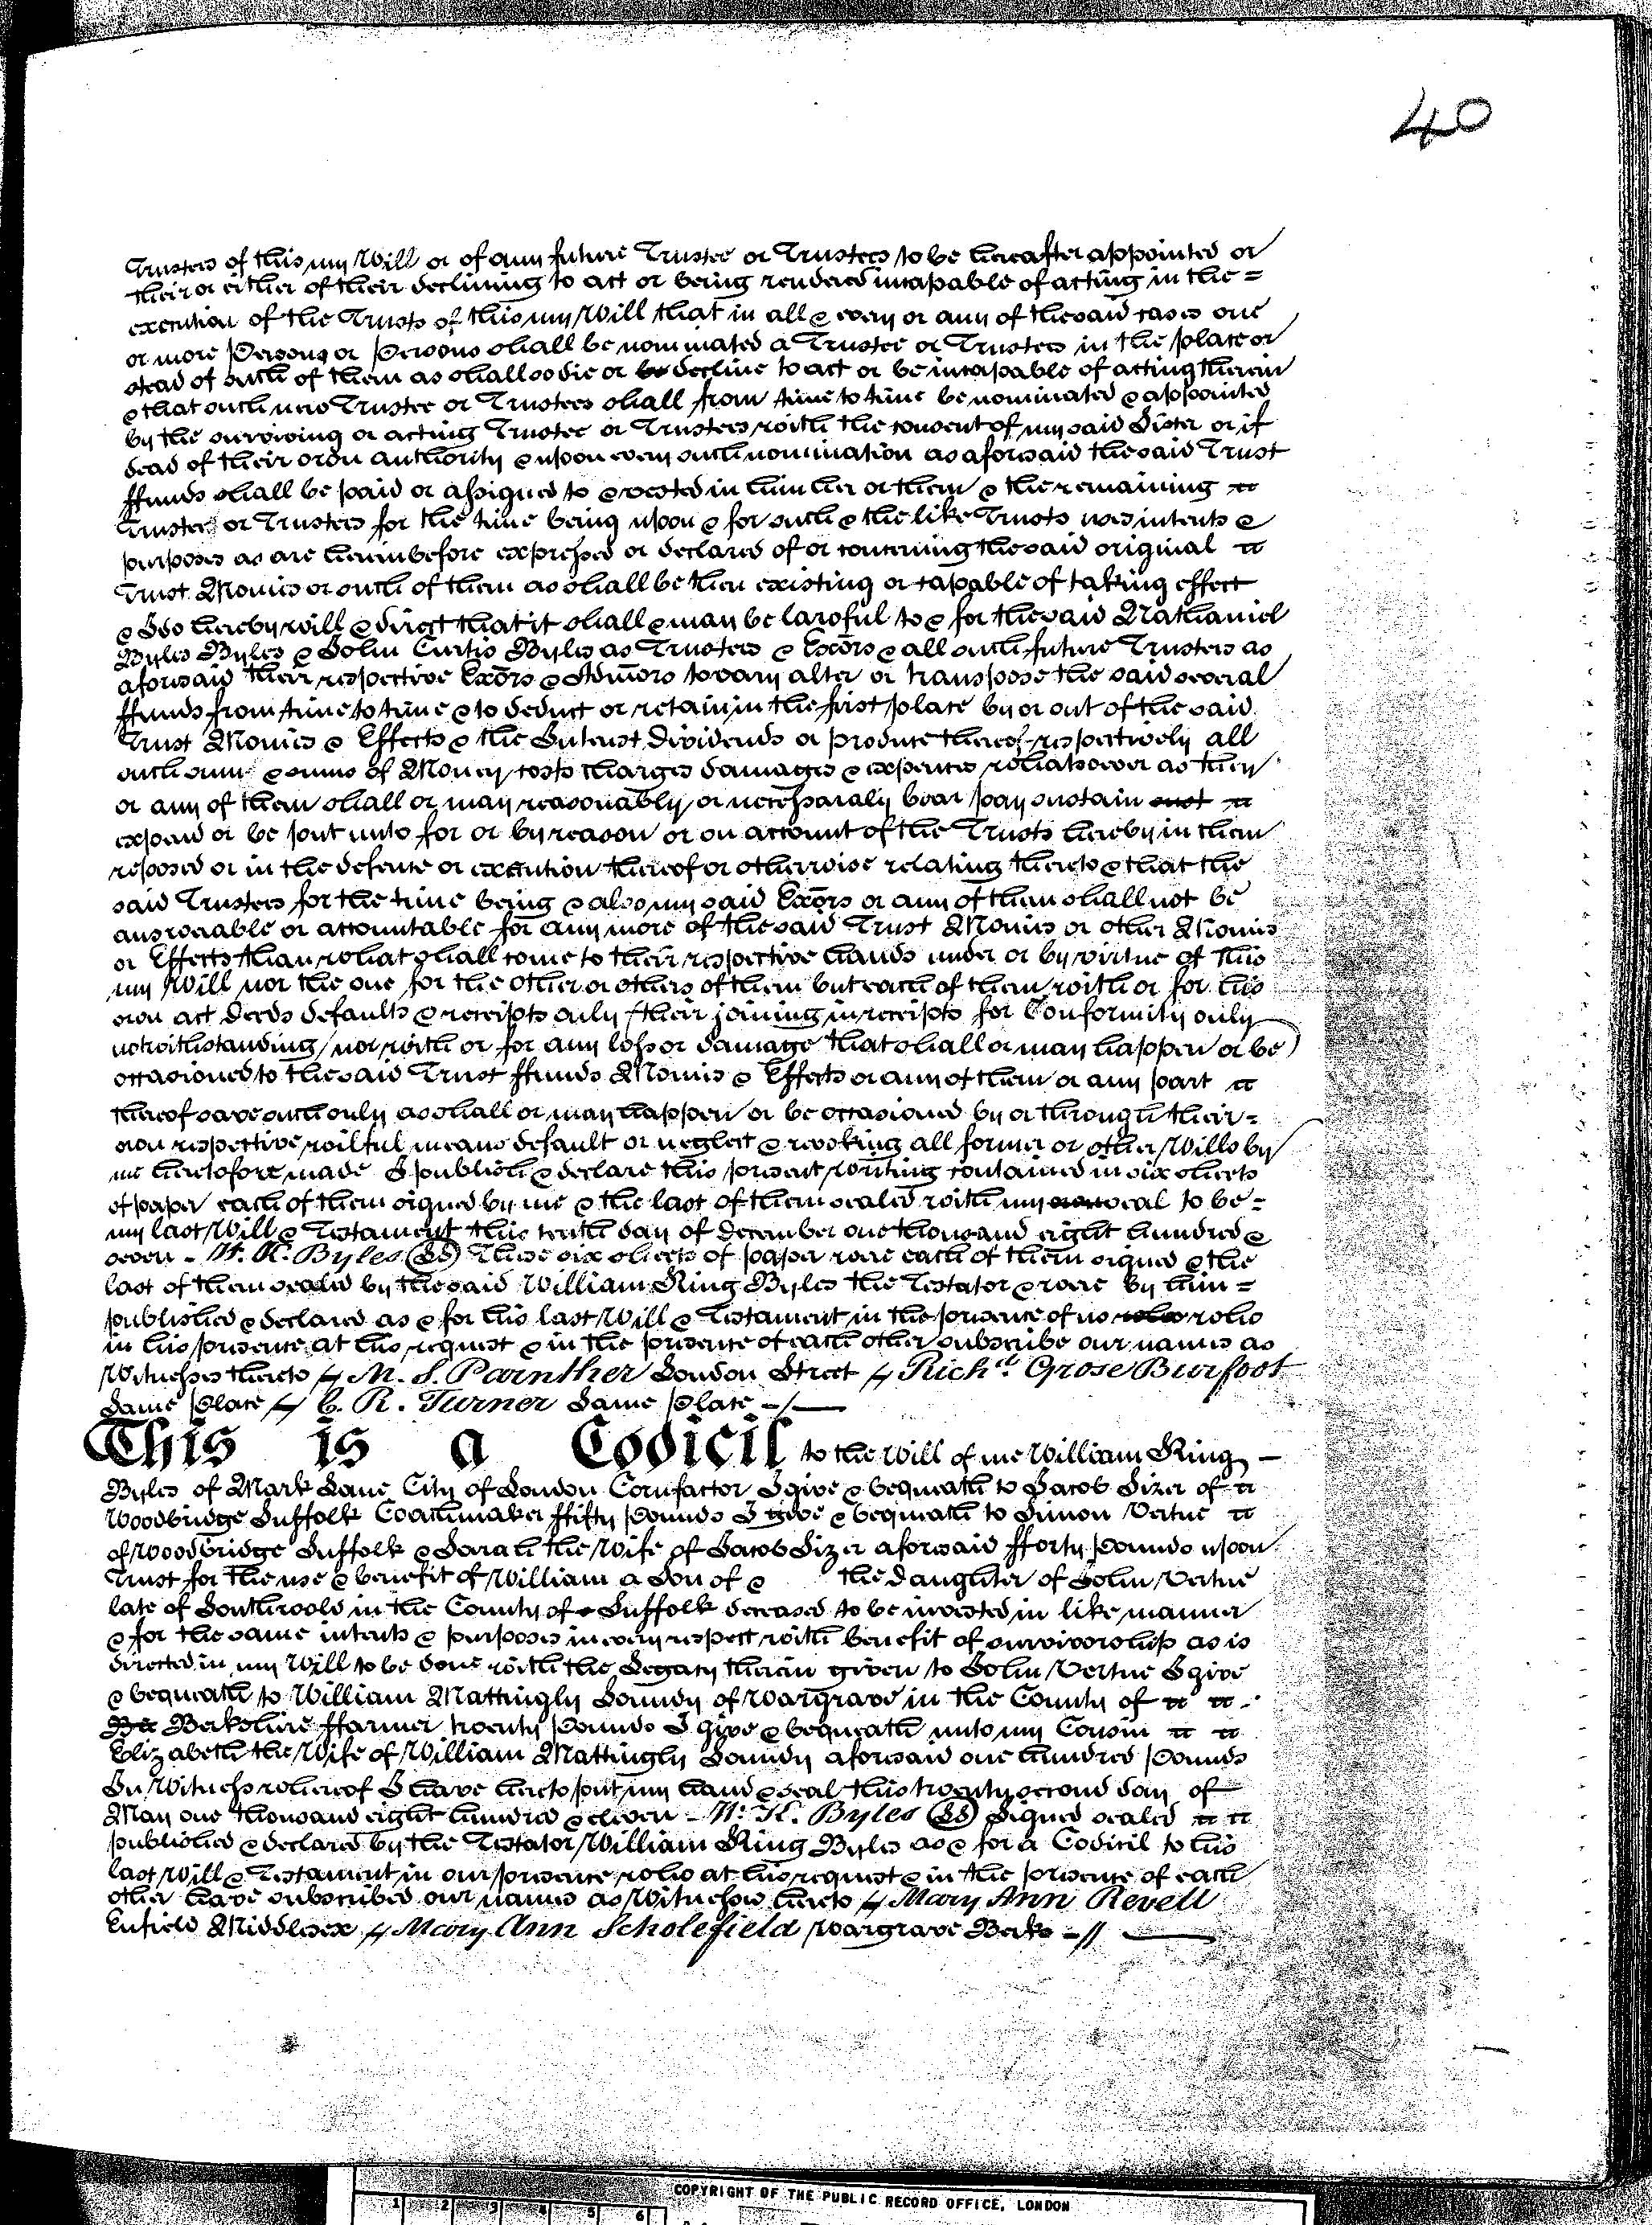 40
Trustees of this my Will or of any future Trustee or Trustees to be hereafter appointed or
their or either of their declining to act or being rendered incapable of acting in the =
execution of the Trusts of this my Will that in all & every or any of the said cases one
or more Persons or Persons shall be nominated a Trustee or Trustees in the place or
stead of such of them as shall so die or be decline to act or be incapable of acting therein
& that such new Trustee or Trustees shall from time to time be nominated & appointed
by the surviving or acting Trustee or Trustees with the consent of my said Sister or if
dead of their own authority & upon every such nomination as aforesaid the said Trust
ffunds shall be paid or assigned to & vested in him her or them & the remaining
Trustee or Trustees for the time being upon & for such & the like Trusts uses intents &
purposes as are herein before expressed or declared of or concerning the said original
Trust Monies or such of them as shall be then existing or capable of taking effect
& I do hereby will & direct that it shall & may be lawful to & for the said Nathaniel
Byles Byles & John Curtis Byles as Trustees & Exōrs & all such future Trustees as
aforesaid their respective Exōrs & Admōrs to vary alter or transpose the said several
ffunds from time to time & to deduct or retain in the first place by or out of the said
Trust Monies & Effects & the Interest Dividends or produce thereof respectively all
such sum & sums of Money costs charges damages & expences whatsoever as they
or any of them shall or may reasonably or necessaraly bear pay sustain
expend or be put unto for or by reason or on account of the Trusts hereby in them
reposed or in the defence or execution thereof or otherwise relating thereto & that the
said Trustees for the time being & also my said Exōrs or any of them shall not be
answerable or accountable for any more of the said Trust Monies or other Monies
or Effects than what shall come to their respective hands under or by virtue of this
my Will nor the one for the other or others of them but each of them with or for his
own act deeds defaults & receipts only (their joining in receipts for Conformity only
notwithstanding) nor with or for any loss or damage that shall or may happen or be
occasioned to the said Trust ffunds Monies & Effects or any of them or any part
thereof save such only as shall or may happen or be occasioned by or through their =
own respective wilful means default or neglect & revoking all former or other Wills by
me heretofore made I publish & declare this present writing contained in six sheets
of paper each of them signed by me & the last of them sealed with my seal to be =
my last Will & Testament this tenth day of December one thousand eight hundred &
seven - W. K. Byles (LS) These six sheets of paper were each of them signed & the
last of them sealed by the said William King Byles the Testator & were by him =
published & declared as & for his last Will & Testament in the presence of us who
in his presence at his request & in the presence of each other subscribe our names as
Witnesses thereto // M. S. Parnther London Street // Richd. Grose Burfoot
Same Place // C. R. Turner Same Place -/-
This is a Codicil to the Will of me William King -
Byles of Mark Lane City of London Cornfactor I give & bequeath to Jacob Sizer of
Woodbridge Suffolk Coachmaker ffifty Pounds I give & bequeath to Simon Vertue
of Woodbridge Suffolk & Sarah the Wife of Jacob Sizer aforesaid fforty Pounds upon
Trust for the use & benefit of William a Son of & the Daughter of John Vertue
late of Southwold in the County of Suffolk deceased to be invested in like manner
& for the same intents & purposes in every respect with benefit of survivorship as is
directed in my Will to be done with the Legacy therein given to John Vertue I give
& bequeath to William Mattingly Soundy of Wargrave in the County of
Be Berkshire ffarmer twenty Pounds I give & bequeath unto my Cousin
Elizabeth the Wife of William Mattingly Soundy aforesaid one hundred Pounds
In Witness whereof I have hereto put my hand & seal this twenty second day of
May one thousand eight hundred & eleven - W. K. Byles (LS) Signed sealed
published & declared by the Testator William King Byles as & for a Codicil to his
last Will & Testament in our presence who at his request & in the presence of each
other have subscribed our names as Witnesses hereto // Mary Ann Revell
Enfield Middlesex // Mary Ann Scholefield Wargrave Berks -//
COPYRIGHT OF THE PUBLIC RECORD OFFICE, LONDON
1 2 3 4 5 6